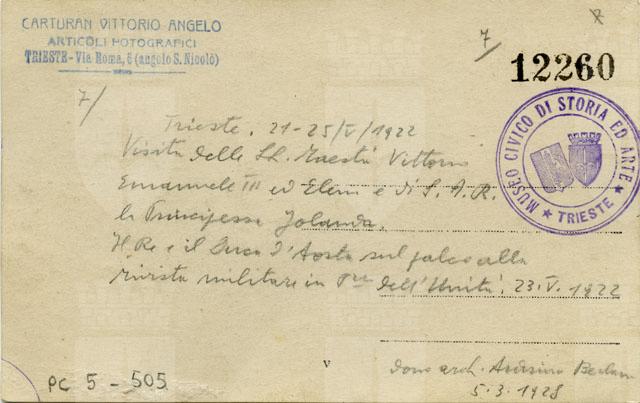 CARTURAN VITTORIO ANGELO
ARTICOLI FOTOGRAFICI
TRIESTE - Via Roma, 6 (angolo S. Nicolò)
7
12260
MUSEO CIVICO DI STORIA ED ARTE
TRIESTE
7/
Trieste, 21-25/V/1922
Visita delle LL. Maestà Vittorio
Emanuele III ed Elena e di S. A. R.
la Principessa Jolanda.
Il Re e il Duca d'Aosta sul palco alla
rivista militare in P.za dell'Unità, 23.V.1922
v
dono arch.
5.3.1928
PC 5 - 505